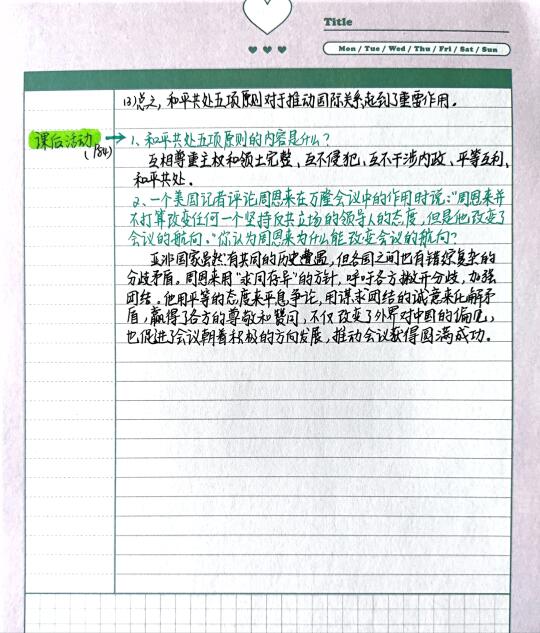 Title
Mon / Tue / Wed / Thu / Fri / Sat / Sun
(3)总之，和平共处五项原则对于推动国际关系起到了重要作用。
课后活动
(P84)
1、和平共处五项原则的内容是什么？
互相尊重主权和领土完整，互不侵犯，互不干涉内政，平等互利，
和平共处。
2、一个美国记者评论周恩来在万隆会议中的作用时说："周恩来并
不打算改变任何一个坚持反共立场的领导人的态度，但是他改变了
会议的航向。"你认为周恩来为什么能改变会议的航向？
亚非国家虽然有共同的历史遭遇，但各国之间也有错综复杂的
分歧矛盾。周恩来用"求同存异"的方针，呼吁各方撇开分歧，加强
团结。他用平等的态度来平息争论，用谋求团结的诚意来化解矛
盾，赢得了各方的尊敬和赞同，不仅改变了外界对中国的偏见，
也促进了会议朝着积极的方向发展，推动会议获得圆满成功。